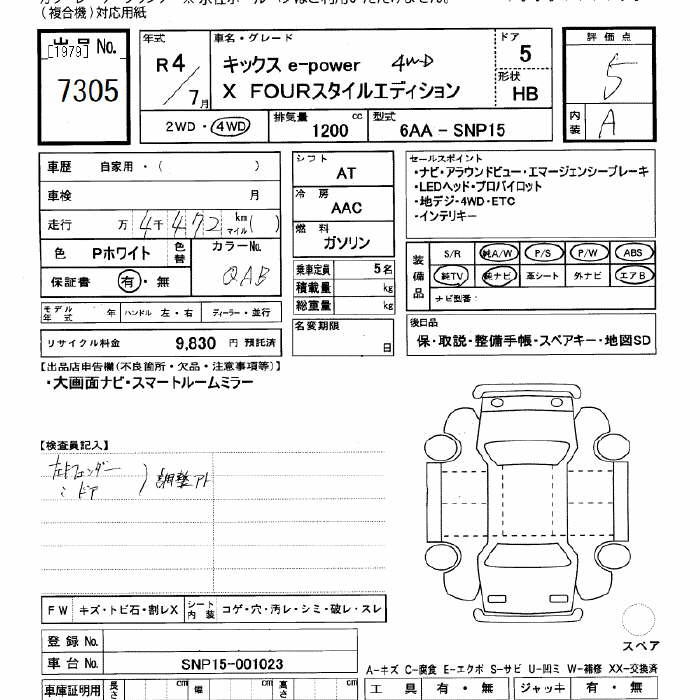 (複合機)対応用紙
出品 No.
[1979]
7305
年式
R4/7月
車名・グレード
キックス e-power 4WD
X FOURスタイルエディション
ドア
5
形状
HB
評価点
5
内装
A
2WD・4WD
排気量
1200 cc
型式
6AA - SNP15
車歴 自家用・( )
車検 月
走行 万 4千472 km マイル( )
色 Pホワイト 色替
カラーNo.
QAB
保証書 有・無
モデル年式 年 ハンドル 左・右 ディーラー・並行
リサイクル料金 9,830 円 預託済
シフト
AT
冷房
AAC
燃料
ガソリン
乗車定員 5名
積載量 kg
総重量 kg
名変期限
日
セールスポイント
・ナビ・アラウンドビュー・エマージェンシーブレーキ
・LEDヘッド・プロパイロット
・地デジ・4WD・ETC
・インテリキー
装備品
S/R 純A/W P/S P/W ABS
純TV 純ナビ 革シート 外ナビ エアB
ナビ型番:
後日品
保・取説・整備手帳・スペアキー・地図SD
【出品店申告欄(不良箇所・欠品・注意事項等)】
・大画面ナビ・スマートルームミラー
【検査員記入】
左Fフェンダー
〃 ドア
)調整アト
FW キズ・トビ石・割レX シート内装 コゲ・穴・汚レ・シミ・破レ・スレ
登録 No.
車台 No. SNP15-001023
スペア
A-キズ C-腐食 E-エクボ S-サビ U-凹ミ W-補修 XX-交換済
車庫証明用 長さ cm 幅 cm 高さ cm
工具 有・無 ジャッキ 有・無